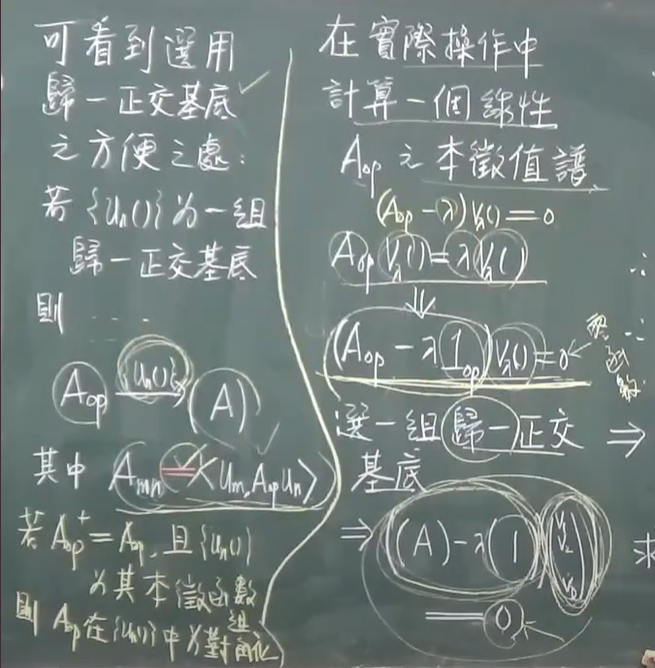 可看到選用
歸一正交基底
之方便之處:
若{Un()}为一組
歸一正交基底
則 ....
Aop {Un()} (A)
其中 Amn = <Um, Aop Un>
若 Aop⁺ = Aop, 且{Un()}
为其本徵函數組
則 Aop在{Un()}中为對角化
在實際操作中
計算一個線性
Aop 之本徵值譜
(Aop - λ)Vλ() = 0
Aop Vλ() = λVλ()
⇓
(Aop - λ 1op)Vλ() = 0 ← 零函數
選一組歸一正交 ⇒
基底
⇒ ((A) - λ(1)) (V1 V2 ⋮ Vn)
= 0
求